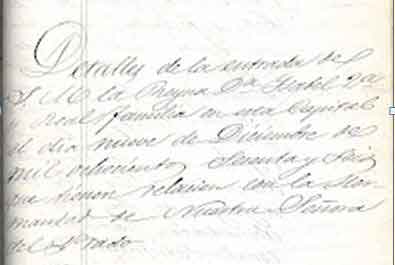 Detalles de la entrada de
S. M. la Reyna Dª Isabel 2ª
y Real familia en esta Capital
el dia nueve de Diciembre de
mil ochocientos Sesenta y Seis
que tienen relacion con la Her-
mandad de Nuestra Señora
del Prado